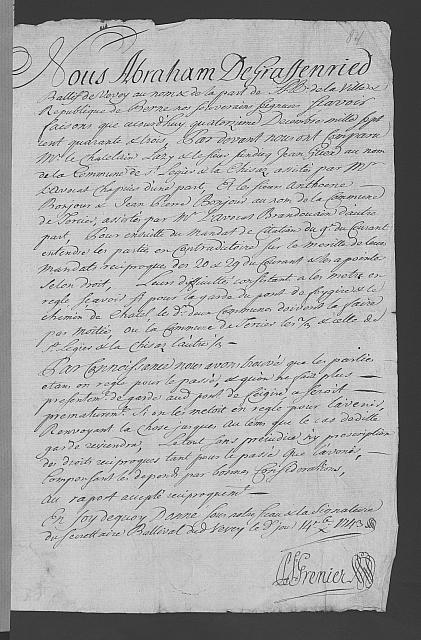 Nous Abraham DeGraffenried
Ballif de Vevey au nom & de la part de de la Ville &
Republique de Berne nos souverains seigneurs scavoir
faisons que aujourd'huy quatorzieme Decembre mille sept
cent quarante & trois, Par devant nous ont Comparu
Mr. le Chatelain & le sieur sindicq Jean au nom
de la Commune de St. Legier & la Chiesaz, assistés par Mr.
L'avocat d'une part, Et les sieurs Anthoene
Bonjour & Jean Pierre Bonjour au nom de la Commune
de assistés par Mr. L'avocat d'autre
part, Pour ensuitte du Mandat de Citation du 9e. du Courant
entendre les parties en Contradictoire sur le merite de leurs
Mandats reciproques des 20 & 29 du Courant & les apointer
selon droit, Leurs difficultés consistant a les mettre en
regle scavoir si pour la garde du pont de & le
chemin de Chatel, les d. deux Communes doivent la faire
par moitié ou la Commune de les ⅔ & celle de
St. Legier & la Chiesaz l'autre ⅓
Par Connoissance nous avons trouvé que les parties
etant en regle pour le passé, & qu'on ne fait plus
presentement de garde au pont de seroit
prematurement si on les mettoit en regle pour l'avenir,
Renvoyant la Chose jusques au tems que le cas de ditte
garde reviendra, Le tout sans prejudice ny prescription
des droits reciproques tant pour le passé que l'avenir,
Compensant les depends par bonnes Considerations,
Au raport accepté reciproquement
En foy dequoy Donné sous notre sceau & la signature
du Secrettaire Ballival de Vevey le d. jour 14e. Xbre 1743
Grenier